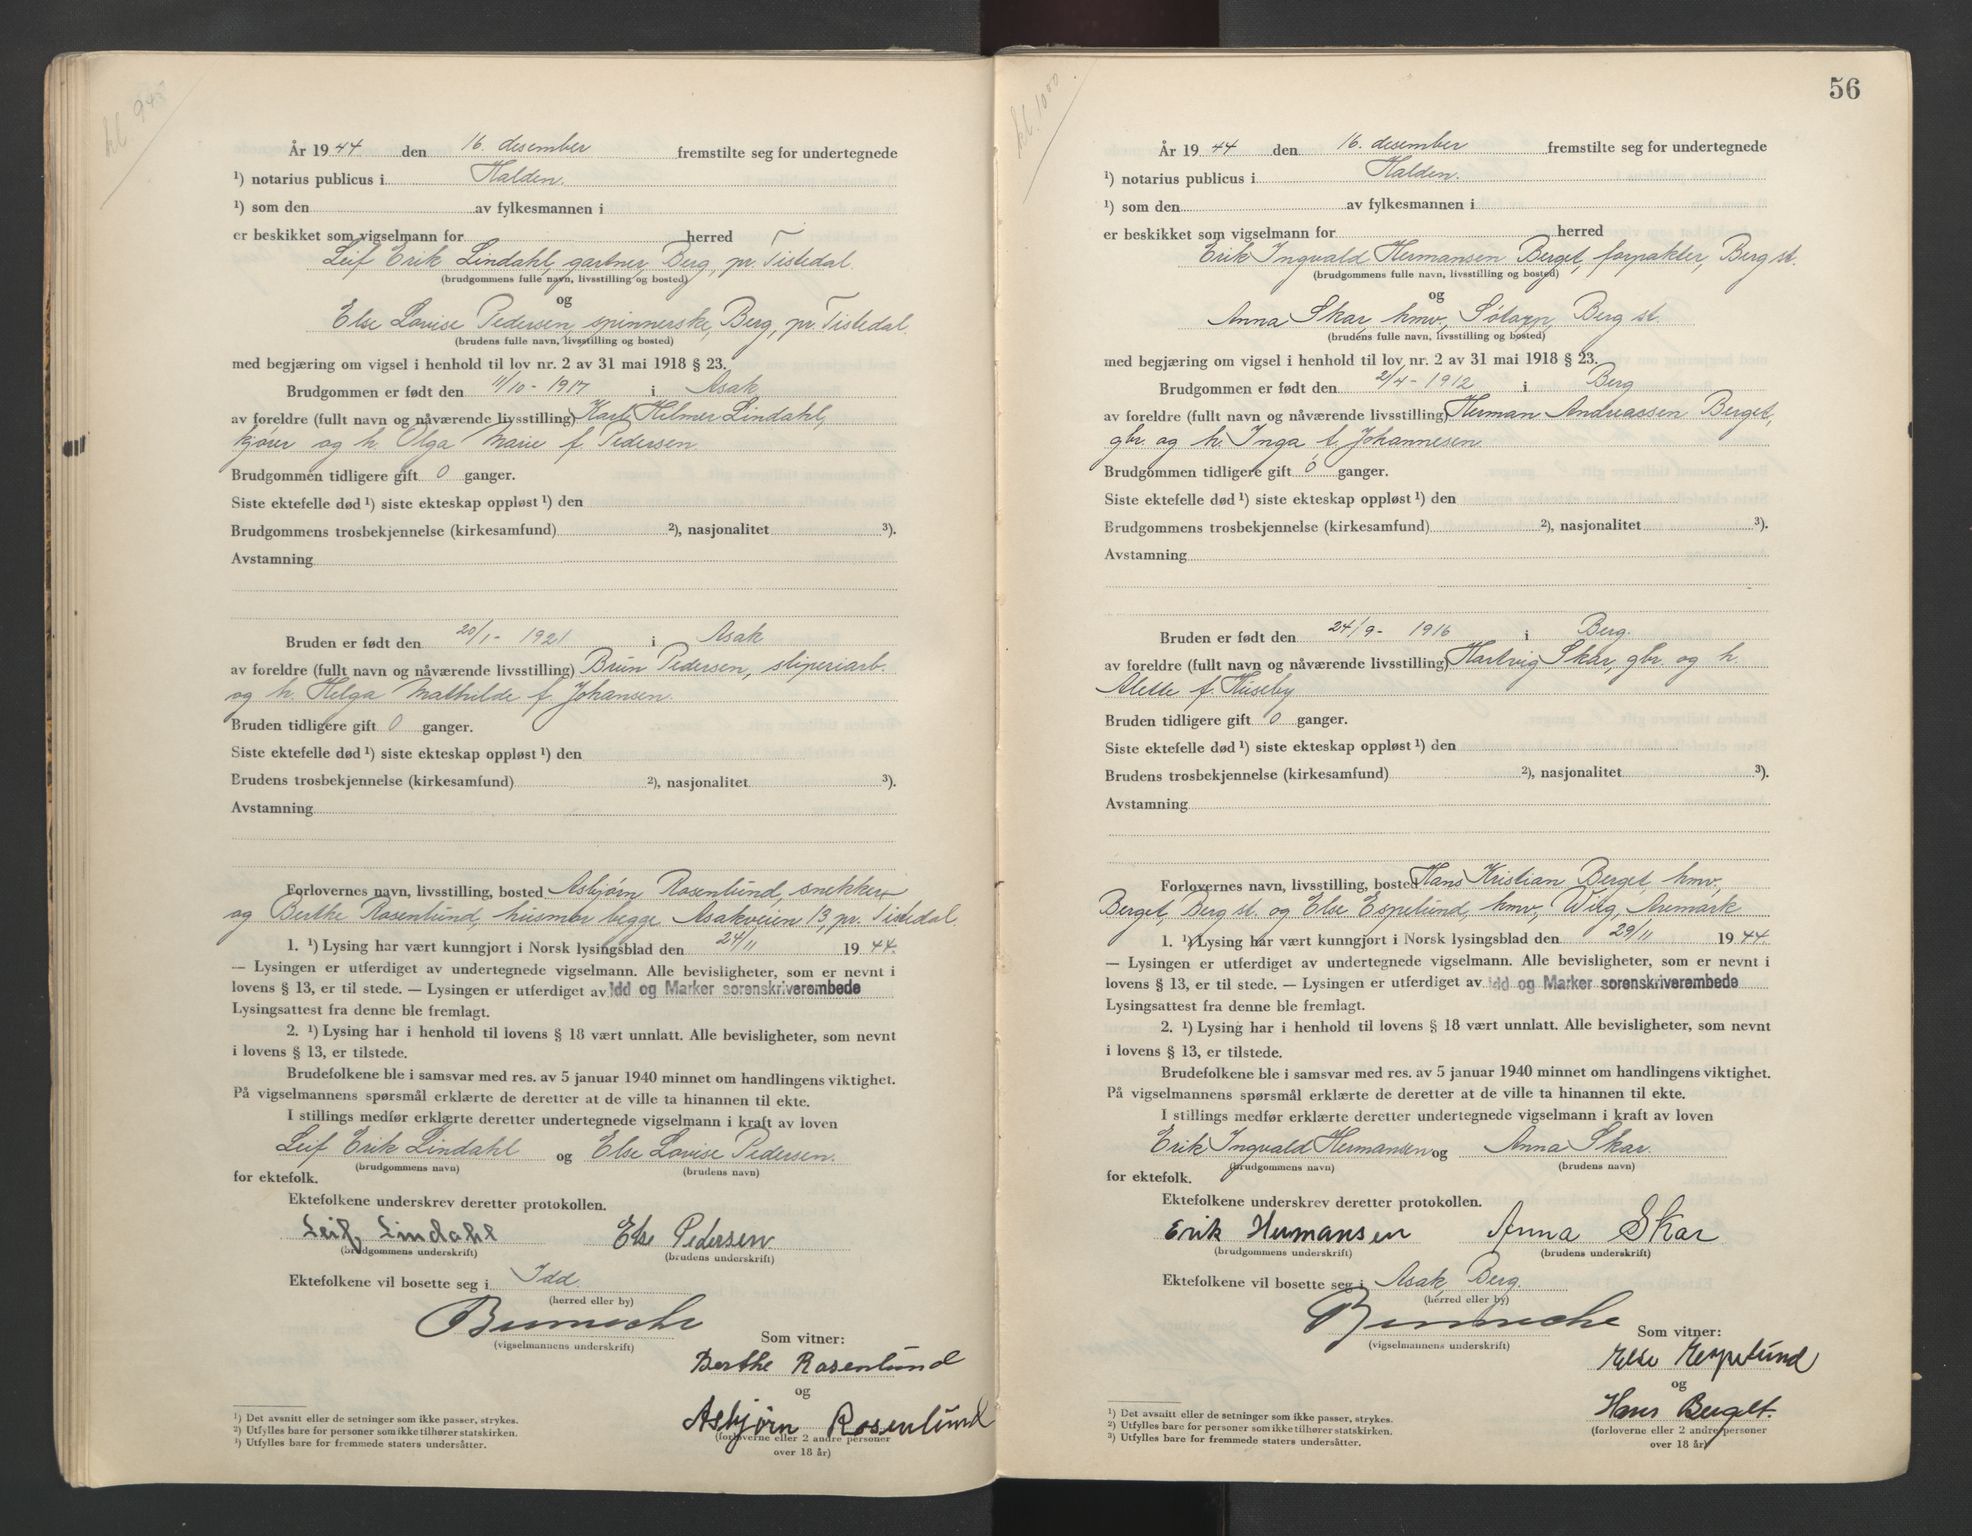 kl. 945
År 1944 den 16. desember fremstilte seg for undertegnede
1) notarius publicus i Halden.
1) som den av fylkesmannen i
er beskikket som vigselmann for herred
Leif Erik Lindahl, gartner, Berg, pr. Tistedal
(brudgommens fulle navn, livsstilling og bosted)
og
Else Lovise Pedersen, spinnerske, Berg, pr. Tistedal.
(brudens fulle navn, livsstilling og bosted)
med begjæring om vigsel i henhold til lov nr. 2 av 31 mai 1918 § 23.
Brudgommen er født den 11/10 - 1917 i Asak
av foreldre (fullt navn og nåværende livsstilling) Karl Hilmer Lindahl,
kjører og h. Olga Marie f. Pedersen.
Brudgommen tidligere gift 0 ganger.
Siste ektefelle død 1) siste ekteskap oppløst 1) den
Brudgommens trosbekjennelse (kirkesamfund) 2), nasjonalitet 3).
Avstamning
Bruden er født den 20/1 - 1921 i Asak
av foreldre (fullt navn og nåværende livsstilling) Brun Pedersen, sliperiarb.
og h. Helga Mathilde f. Johansen.
Bruden tidligere gift 0 ganger.
Siste ektefelle død 1) siste ekteskap oppløst 1) den
Brudens trosbekjennelse (kirkesamfund) 2), nasjonalitet 3).
Avstamning
Forlovernes navn, livsstilling, bosted Asbjørn Rosenlund, snekker
og Berthe Rosenlund, husmor begge Asakveien 13, pr. Tistedal.
1. 1) Lysing har vært kunngjort i Norsk lysingsblad den 24/11 1944.
— Lysingen er utferdiget av undertegnede vigselmann. Alle bevisligheter, som er nevnt i
lovens § 13, er til stede. — Lysingen er utferdiget av Idd og Marker sorenskriverembede
Lysingsattest fra denne ble fremlagt.
2. 1) Lysing har i henhold til lovens § 18 vært unnlatt. Alle bevisligheter, som nevnt
i lovens § 13, er tilstede.
Brudefolkene ble i samsvar med res. av 5 januar 1940 minnet om handlingens viktighet.
På vigselmannens spørsmål erklærte de deretter at de ville ta hinannen til ekte.
I stillings medfør erklærte deretter undertegnede vigselmann i kraft av loven
Leif Erik Lindahl og Else Lovise Pedersen.
(brudgommens navn) (brudens navn)
for ektefolk.
Ektefolkene underskrev deretter protokollen.
Leif Lindahl Else Pedersen
(brudgommens underskrift) (brudens underskrift)
Ektefolkene vil bosette seg i Idd.
(herred eller by)
(vigselmannens underskrift) Som vitner:
Berthe Rosenlund
og
Asbjørn Rosenlund
(forloverne eller 2 andre personer
over 18 år)
1) Det avsnitt eller de setninger som ikke passer, strykes.
2) Utfylles bare for personer som ikke tilhører statskirken.
3) Utfylles bare for fremmede staters undersåtter.
56
kl. 1000
År 1944 den 16. desember fremstilte seg for undertegnede
1) notarius publicus i Halden.
1) som den av fylkesmannen i
er beskikket som vigselmann for herred
Erik Ingvald Hermansen Berget, forpakter, Berg st.
(brudgommens fulle navn, livsstilling og bosted)
og
Anna Skar, hmv., Søtorp, Berg st.
(brudens fulle navn, livsstilling og bosted)
med begjæring om vigsel i henhold til lov nr. 2 av 31 mai 1918 § 23.
Brudgommen er født den 2/4 - 1912 i Berg
av foreldre (fullt navn og nåværende livsstilling) Herman Andreassen Berget,
gbr. og h. Inga f. Johannesen.
Brudgommen tidligere gift 0 ganger.
Siste ektefelle død 1) siste ekteskap oppløst 1) den
Brudgommens trosbekjennelse (kirkesamfund) 2), nasjonalitet 3).
Avstamning
Bruden er født den 24/9 - 1916 i Berg.
av foreldre (fullt navn og nåværende livsstilling) Hartvig Skar, gbr. og h.
Alette f. Huseby
Bruden tidligere gift 0 ganger.
Siste ektefelle død 1) siste ekteskap oppløst 1) den
Brudens trosbekjennelse (kirkesamfund) 2), nasjonalitet 3).
Avstamning
Forlovernes navn, livsstilling, bosted Hans Kristian Berget, hmv,
Berget, Berg st. og Else Espelund, hmv, Aremark
1. 1) Lysing har vært kunngjort i Norsk lysingsblad den 29/11 1944.
— Lysingen er utferdiget av undertegnede vigselmann. Alle bevisligheter, som er nevnt i
lovens § 13, er til stede. — Lysingen er utferdiget av Idd og Marker sorenskriverembede
Lysingsattest fra denne ble fremlagt.
2. 1) Lysing har i henhold til lovens § 18 vært unnlatt. Alle bevisligheter, som nevnt
i lovens § 13, er tilstede.
Brudefolkene ble i samsvar med res. av 5 januar 1940 minnet om handlingens viktighet.
På vigselmannens spørsmål erklærte de deretter at de ville ta hinannen til ekte.
I stillings medfør erklærte deretter undertegnede vigselmann i kraft av loven
Erik Ingvald Hermansen og Anna Skar.
(brudgommens navn) (brudens navn)
for ektefolk.
Ektefolkene underskrev deretter protokollen.
Erik Hermansen Anna Skar
(brudgommens underskrift) (brudens underskrift)
Ektefolkene vil bosette seg i Asak, Berg.
(herred eller by)
(vigselmannens underskrift) Som vitner:
Else Espelund
og
Hans Berget.
(forloverne eller 2 andre personer
over 18 år)
1) Det avsnitt eller de setninger som ikke passer, strykes.
2) Utfylles bare for personer som ikke tilhører statskirken.
3) Utfylles bare for fremmede staters undersåtter.